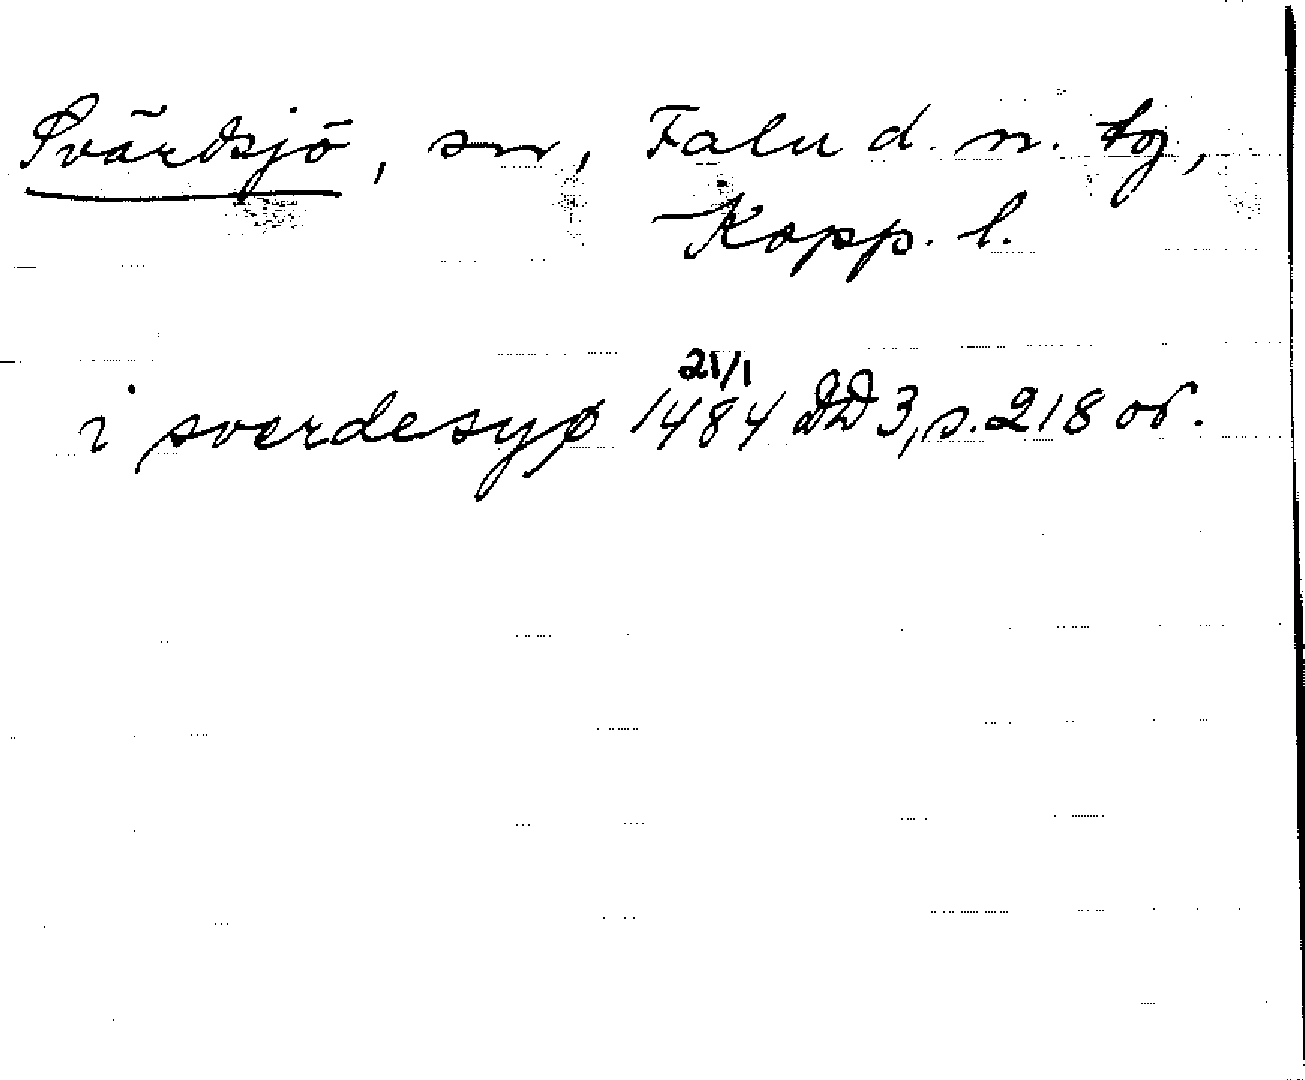 Svärdsjö, sn, Falu d. n. tg,
Kopp. l.
i sverdesyø 21/1 1484 DD 3, s. 218 or.